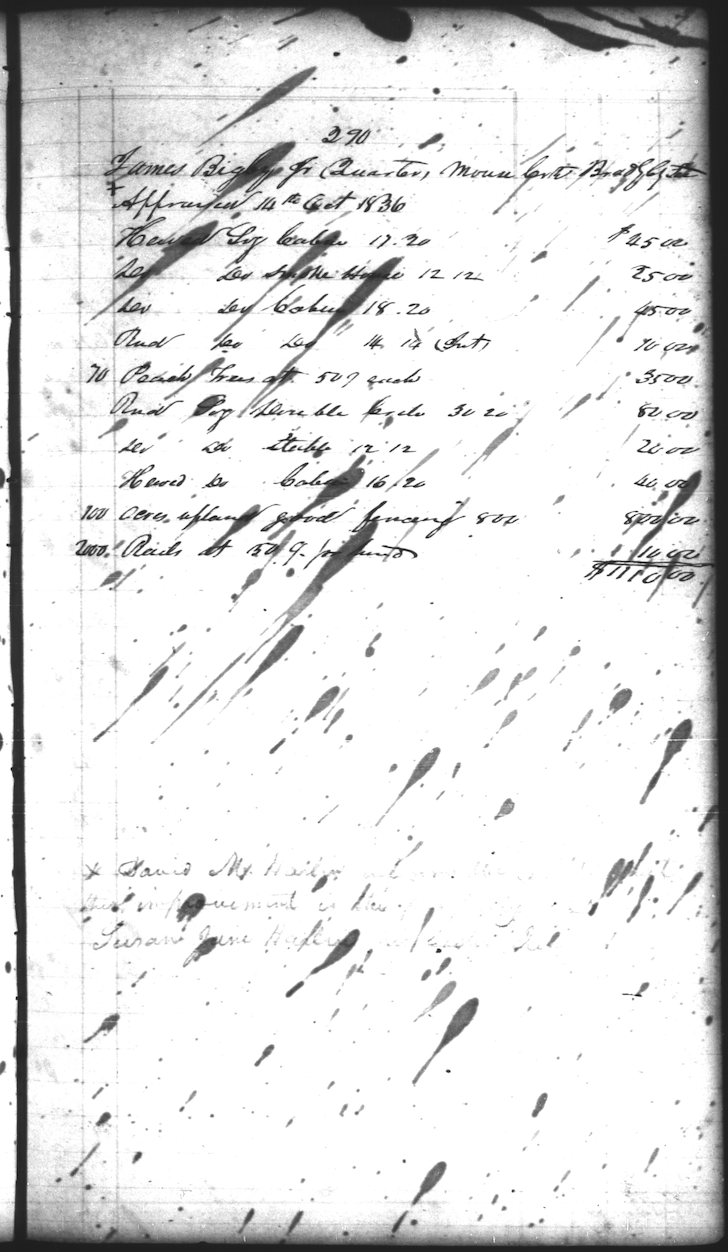 290
James Bigby Jr (Quarter, Mouse Creek Bradly Co
x Appraised 14th Oct 1836
Hewed Log Cabin 17.20 $45 00
Do Do Smoke House 12 12 25 00
Do Do Cabin 18.20 45 00
Rnd Do Do 14 14 10 00
70 Peach Trees at 50 ¢ each 35 00
Rnd Log Double Crib 30 20 80 00
Do Do Stable 12 12 20 00
Hewed Do Cabin 16.20 40 00
100 acres upland good fencing 800 800 00
2000 Rails at 50 ¢ pr hund 10 00
$1110 00
x David
this improvement is the
Susan Jane